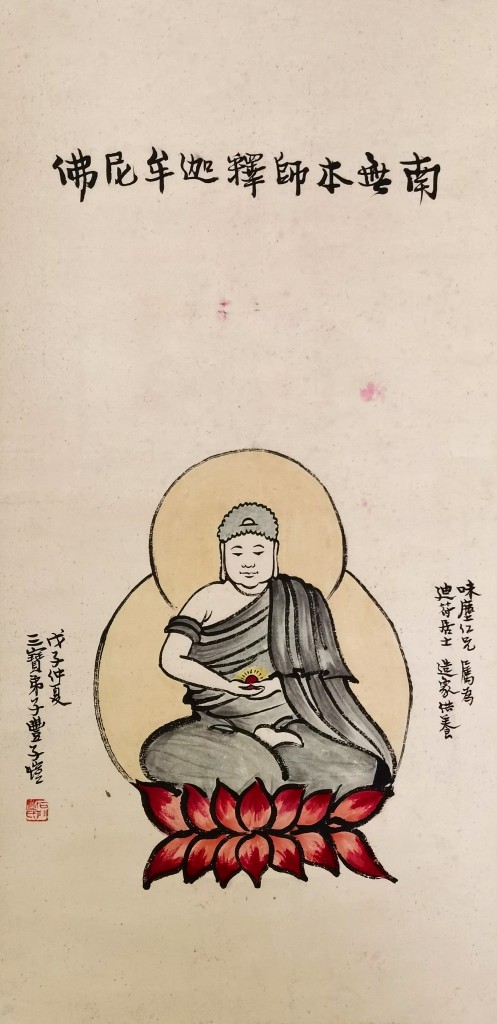 南無本師釋迦牟尼佛
味塵仁兄屬為
迪莊居士造家供養
戊子仲夏
三寶弟子豐子愷